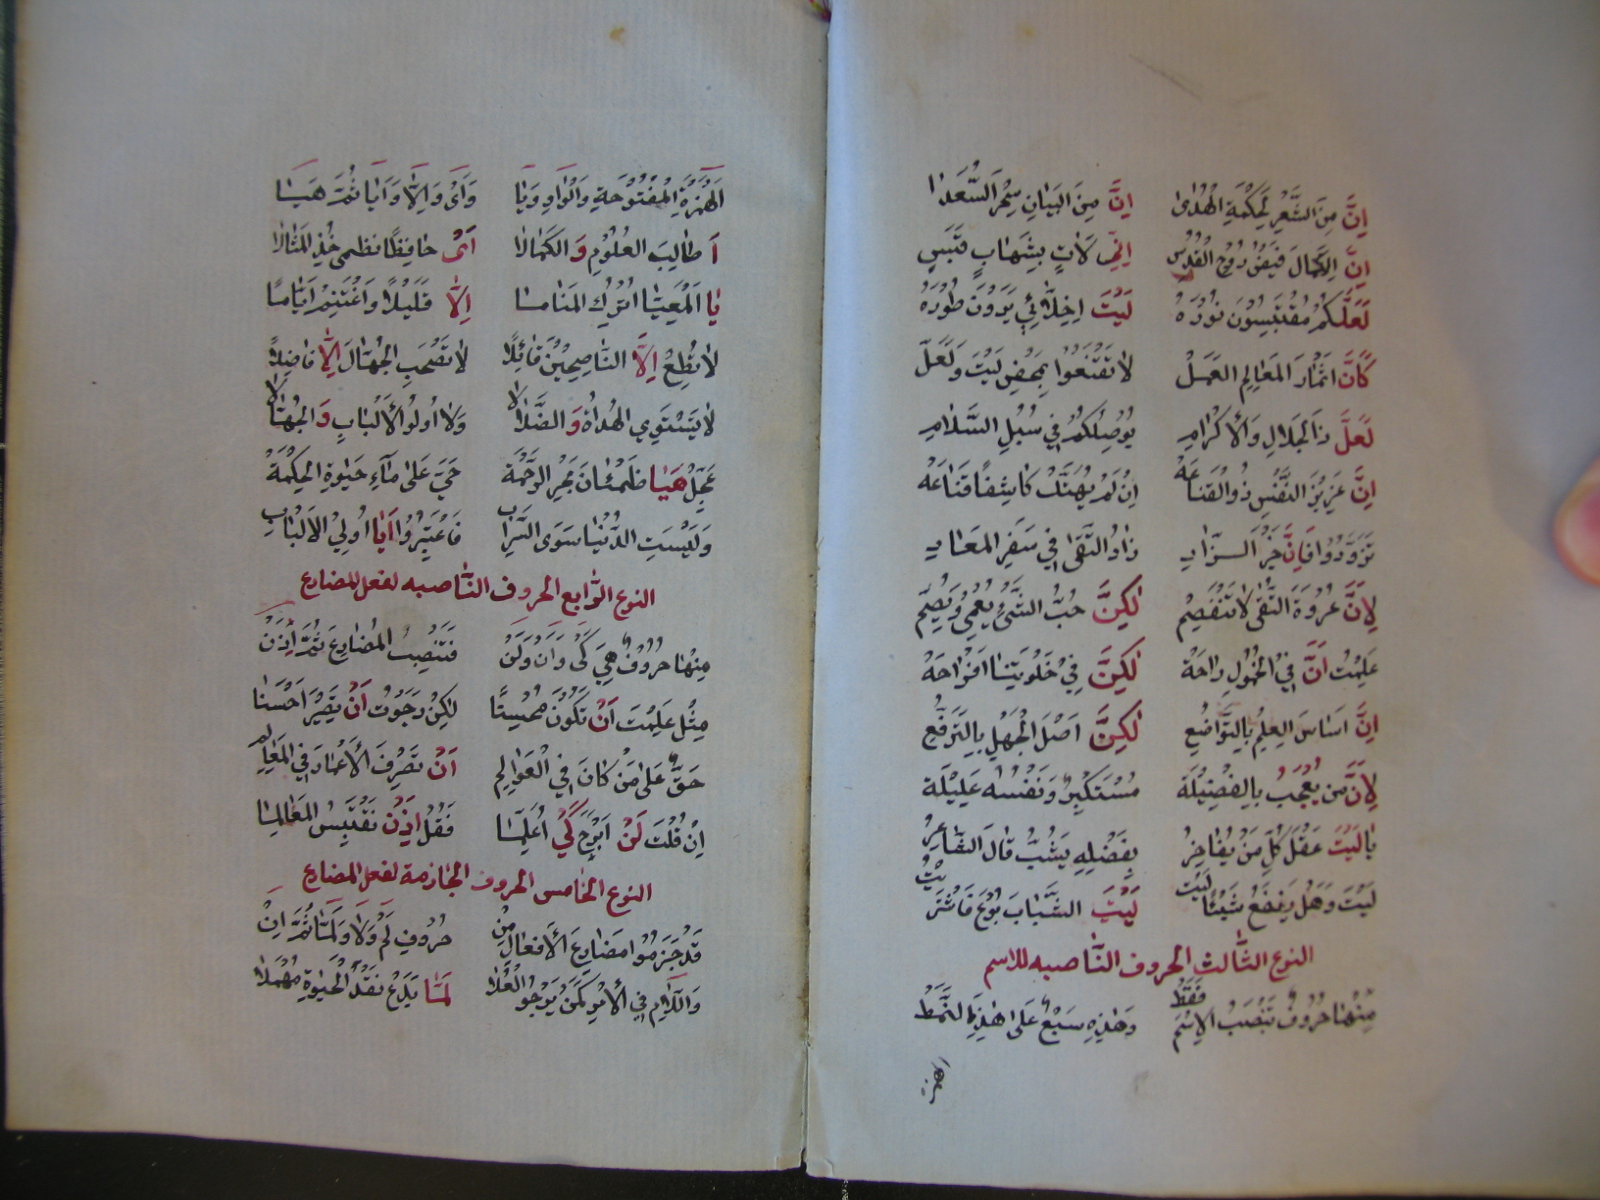 اِنَّ مِنَ الشِّعْرِ لَحِكْمَةِ الْهُدٰى اِنَّ مِنَ الْبَيَانِ سِحْرَ السُّعَدَا
اِنَّ الْكَمَالَ فَيْضُ رُوحِ الْقُدُسِ اِنِّي لَاٰتٍ بِشِهَابٍ قَبَسِ
لَعَلَّكُمْ مُقْتَبِسُونَ نُورَهُ لَيْتَ اَخِلَّائِي يَرَوْنَ طُورَهُ
كَاَنَّ اَثْمَارَ الْمَعَالِمِ الْعَمَلْ لَا تَقْنَعُوا بِمَحْضِ لَيْتَ وَلَعَلّ
لَعَلَّ ذَا الْجَلَالِ وَالْاِكْرَامِ يُوصِلُكُمْ فِي سُبُلِ السَّلَامِ
اِنَّ عَزِيزَ النَّفْسِ ذُو الْقَنَاعَه اِنْ لَمْ يُهَتَّكْ كَاشِفًا قِنَاعَهُ
تَزَوَّدُوا فَاِنَّ خَيْرَ الزَّادِ زَادُ التُّقٰى فِي سَفَرِ الْمَعَادِ
لِاَنَّ عُرْوَةَ التُّقٰى لَا تَنْفَصِمْ لٰكِنَّ حُبُّ الشَّيْءِ يُعْمِي وَيُصِمّ
عَلِمْتُ اَنَّ فِي الْخُمُولِ رَاحَةْ لٰكِنَّ فِي خَلْوَتِنَا اَفْرَاحَهُ
اِنَّ اَسَاسَ الْعِلْمِ بِالتَّوَاضُعِ لٰكِنَّ اَصْلَ الْجَهْلِ بِالتَّرَفُّعِ
لِاَنَّ مَنْ يُعْجَبُ بِالْفَضِيلَة مُسْتَكْبِرٌ وَنَفْسُهُ عَلِيلَة
يَا لَيْتَ عَقْلَ كُلِّ مَنْ يُفَاخِرُ بِفَضْلِهِ يَشُبُّ قَالَ الشَّاعِرُ
لَيْتَ وَهَلْ يَنْفَعُ شَيْئًا لَيْتُ لَيْتَ الشَّبَابَ بُوعَ فَاشْتَرَيْتُ
النوع الثالث الحروف الناصبه للاسم
مِنْهَا حُرُوفٌ تَنْصَبُ الْاِسْمَ فَقَطْ وَهٰذِهِ سَبْعٌ عَلٰى هٰذِهِ النَّمَطْ
الْهَمْزَةِ الْمَفْتُوحَةِ وَالْوَاوِ وَيَا وَاَيْ وَاِلَّا وَاَيَا ثُمَّ هَيَا
اَ طَالِبَ الْعُلُومِ وَالْكَمَالَا اَيْ حَافِظًا نَظْمِي خُذِ الْمَثَالَا
يَا اَلْمَعِيًّا اتْرُكِ الْمَنَامَا اِلَّا قَلِيلًا وَاغْتَنِمْ اَيَّامًا
لَا تُطِعْ اِلَّا النَّاصِحِينَ قَائِلًا لَا تَصْحَبِ الْجُهَّالَ اِلَّا فَاضِلًا
لَا يَسْتَوِي الْهُدَاةُ وَالضُّلَّالَا وَلَا اُولُو الْاَلْبَابِ وَالْجُهَّالَا
عَجِّلْ هَيَا ظَمْئَانَ بَحْرِ الرَّحْمَة حَيَّ عَلٰى مَاءِ حَيٰوةِ الْحِكْمَةْ
وَلَيْسَتِ الدُّنْيَا سَوَى السَّرَابِ فَاعْتَبِرُوا اَيَا اُولِي الْاَلْبَابِ
النوع الرابع الحروف الناصبه لفعل المضارع
مِنْهَا حُرُوفٌ هِيَ كَيْ وَاَنْ وَلَنْ فَتَنْصِبُ الْمُضَارِعَ ثُمَّ اِذَنْ
مِثْلُ عَلِمْتَ اَنْ تَكُونَ مُحْسِنًا لٰكِنْ رَجَوْتُ اَنْ تَصِيرَ اَحْسَنَا
حَقٌّ عَلٰى مَنْ كَانَ فِي الْعَوَالِمِ اَنْ تَصْرِفَ الْاَعْمَارَ فِي الْمَعَالِمِ
اِنْ قُلْتَ لَنْ اَبْرَحَ كَيْ اُعَلِّمَا فَقُلْ اِذَنْ نَقْتَبِسُ الْمَعَالِمَا
النوع الخامس الحروف الجازمة لفعل المضارع
قَدْ جَزَمُوا مُضَارِعَ الْاَفْعَالِ مِنْ حُرُوفِ لَمْ وَلَا وَلَمَّا ثُمَّ اِنْ
وَاللَّامِ فِي الْاَمْرِ كَمَنْ يَرْجُو الْعُلَا لَمَّا يَدَعْ نَقْدَ الْحَيٰوةِ مُهْمَلًا